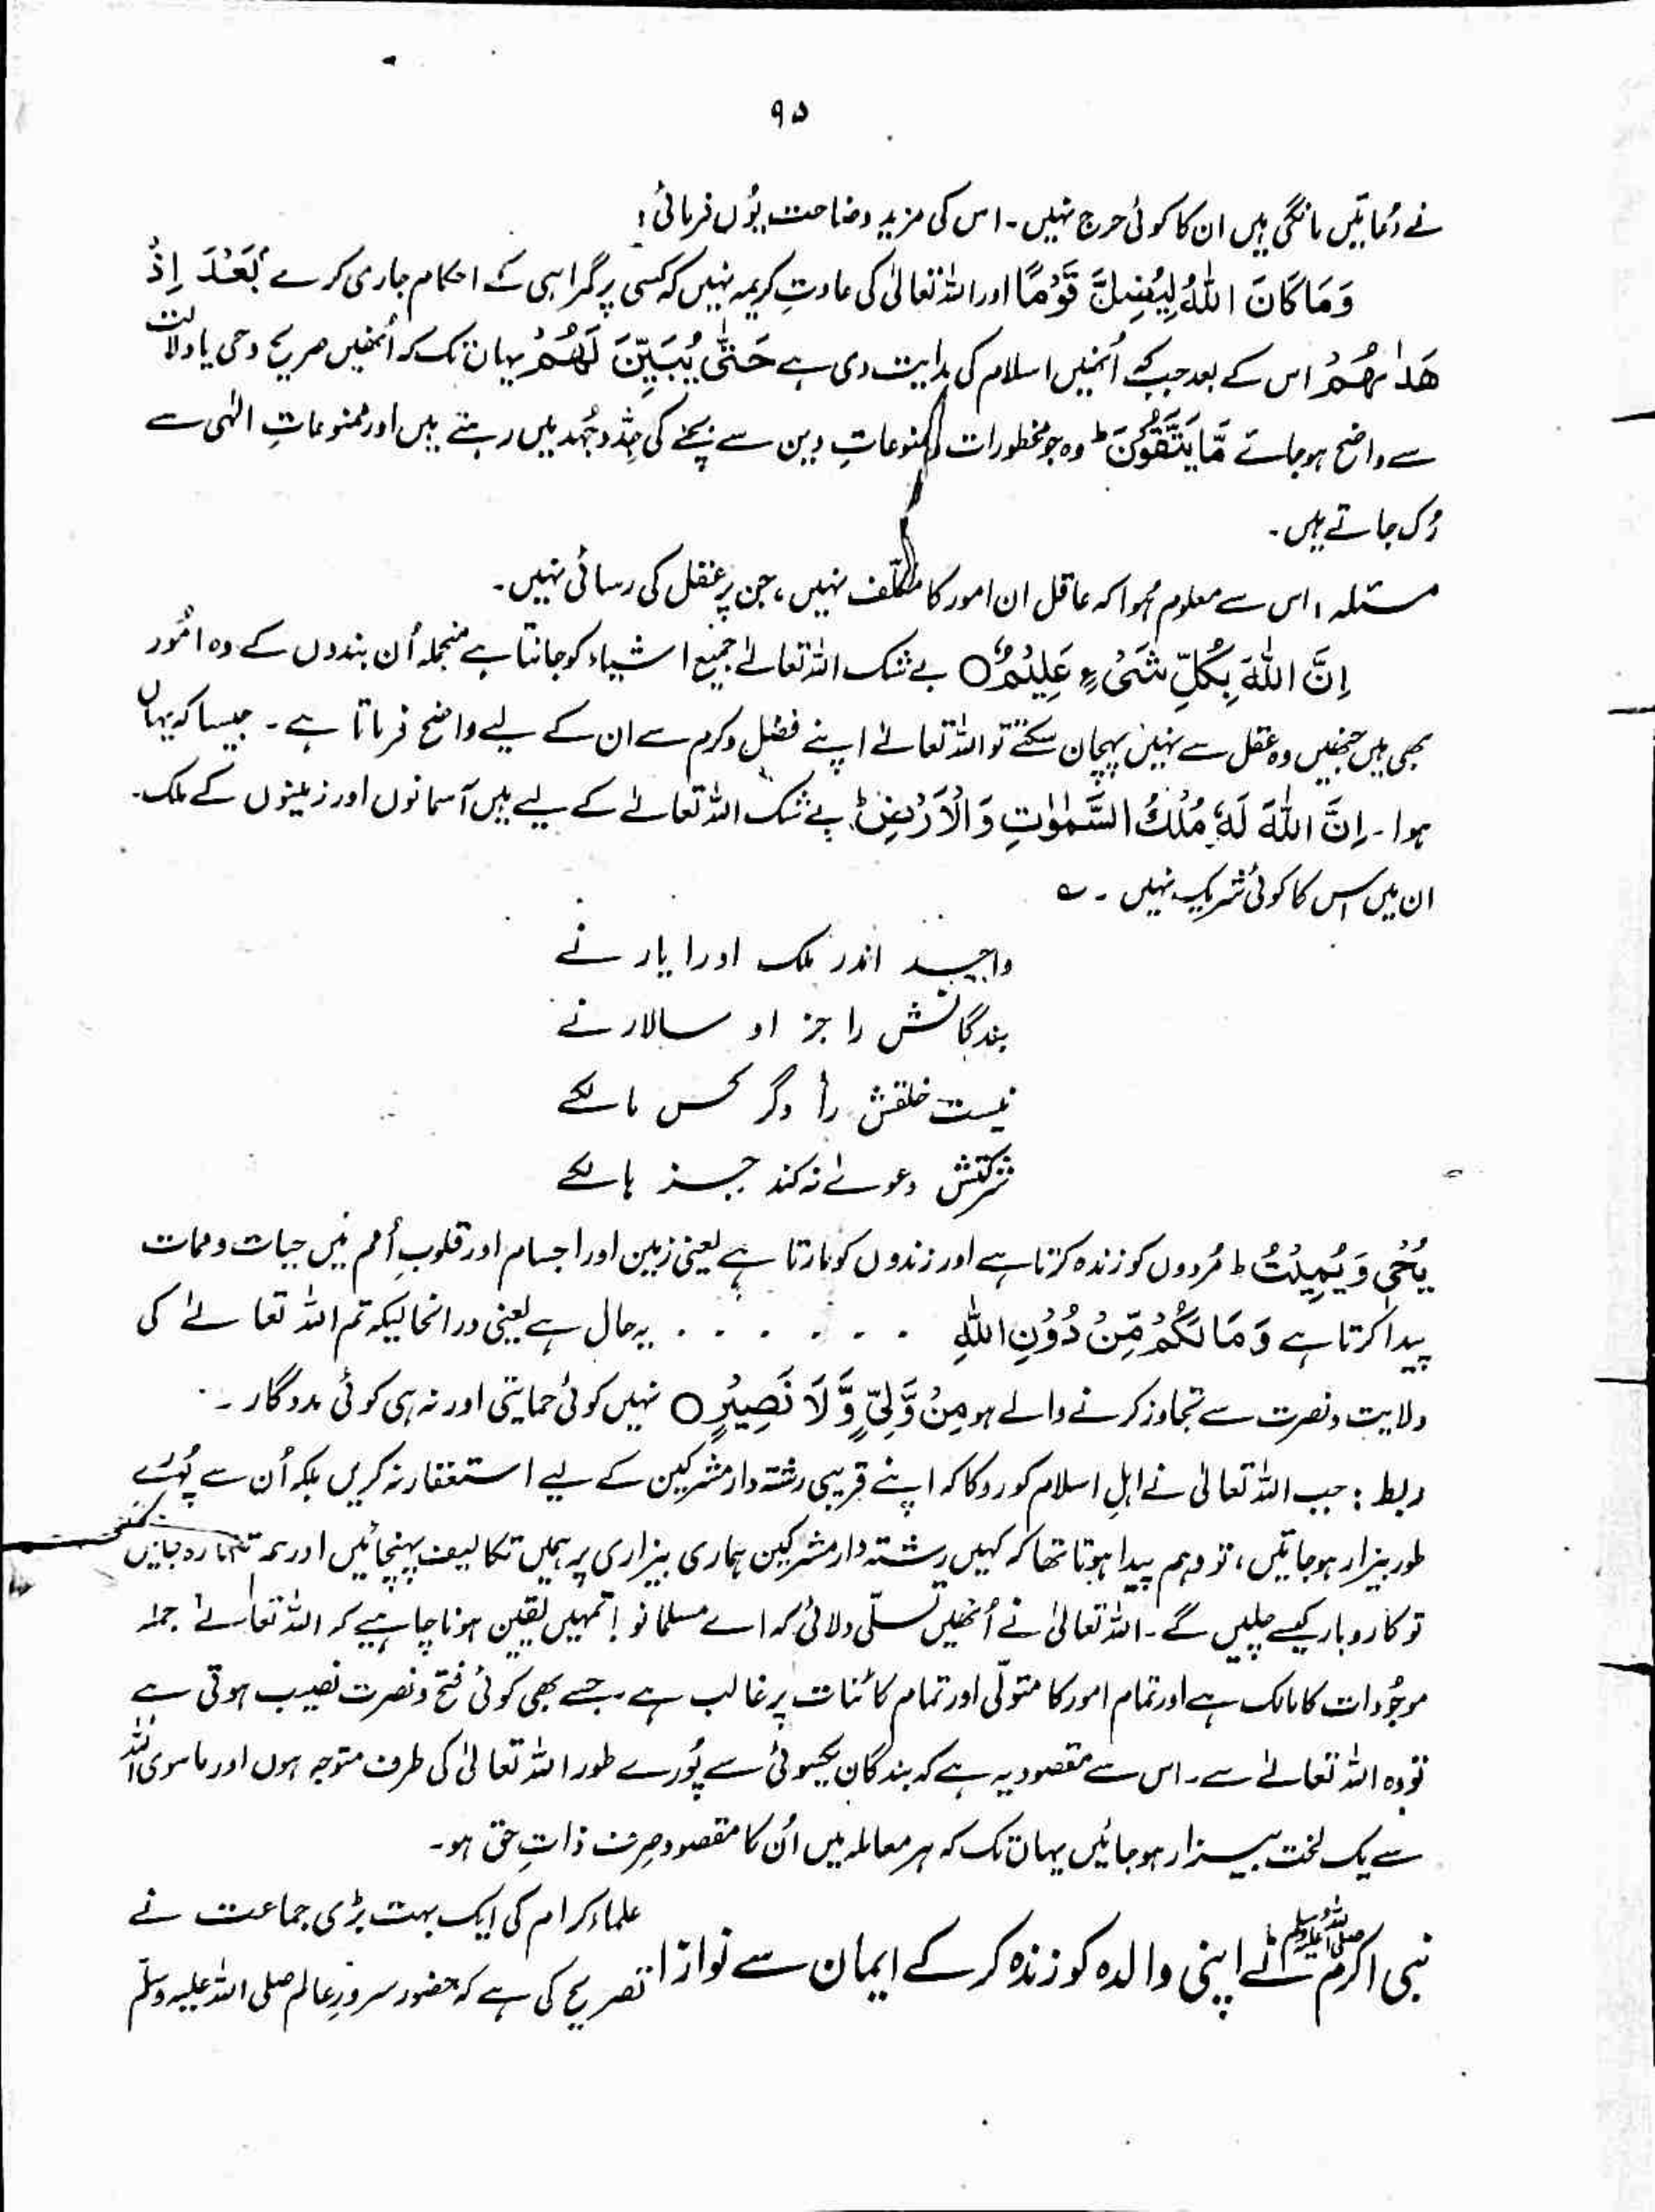 ۹۵
نے دُعائیں مانگی ہیں ان کا کوئی حرج نہیں ۔ اس کی مزید وضاحت یُوں فرمائی :
وَمَا كَانَ اللّٰهُ لِيُضِلَّ قَوْمًا اور اللہ تعالیٰ کی عادتِ کریمہ نہیں کہ کسی پر گمراہی کے احکام جاری کرے بَعْدَ اِذْ
هَدٰىهُمْ اس کے بعد جب کہ اُنھیں اسلام کی ہدایت دی ہے حَتّٰى يُبَيِّنَ لَهُمْ یہاں تک کہ اُنھیں صریح وحی یا دلالت
سے واضح ہوجائے مَّا يَتَّقُوْنَ ط وہ جو محظورات و ممنوعاتِ دین سے بچنے کی جِدّ و جُہد میں رہتے ہیں اور ممنوعاتِ الٰہی سے
رُک جاتے ہیں ۔
مسئلہ : اس سے معلوم ہُوا کہ عاقل ان امور کا مکلّف نہیں ، جن پر عقل کی رسائی نہیں ۔
اِنَّ اللّٰهَ بِكُلِّ شَىْءٍ عَلِيْمٌ ○ بے شک اللہ تعالےٰ جمیع اشیاء کو جانتا ہے منجملہ اُن بندوں کے وہ امُور
بھی ہیں جنھیں وہ عقل سے نہیں پہچان سکتے تو اللہ تعالےٰ اپنے فضل و کرم سے ان کے لیے واضح فرماتا ہے ۔ جیسا کہ یہاں
ہوا ۔ اِنَّ اللّٰهَ لَهٗ مُلْكُ السَّمٰوٰتِ وَالْاَرْضِ ط بے شک اللہ تعالےٰ کے لیے ہیں آسمانوں اور زمینوں کے ملک ۔
ان میں اس کا کوئی شریک نہیں ۔ ؎
واحد اندر ملک اورا یار نے
بندگانش را جز او سالار نے
نیست خلقش را دگر کس مالکے
شرکتش دعوےٰ نہ کند جز ہالکے
يُحْىٖ وَيُمِيْتُ ط مُردوں کو زندہ کرتا ہے اور زندوں کو مارتا ہے یعنی زمین اور اجسام اور قلوبِ اُمم میں حیات و ممات
پیدا کرتا ہے وَمَا لَكُمْ مِّنْ دُوْنِ اللّٰهِ . . . . . . . یہ حال ہے یعنی درانحالیکہ تم اللہ تعالےٰ کی
ولایت و نصرت سے تجاوز کرنے والے ہو مِنْ وَّلِيٍّ وَّلَا نَصِيْرٍ ○ نہیں کوئی حمایتی اور نہ ہی کوئی مددگار ۔
ربط : جب اللہ تعالیٰ نے اہلِ اسلام کو روکا کہ اپنے قریبی رشتہ دار مشرکین کے لیے استغفار نہ کریں بلکہ اُن سے پُورے
طور بیزار ہوجائیں ، تو وہم پیدا ہوتا تھا کہ کہیں رشتہ دار مشرکین ہماری بیزاری پر ہمیں تکالیف پہنچائیں اور ہم تنہا رہ جائیں
تو کاروبار کیسے چلیں گے ۔ اللہ تعالیٰ نے اُنھیں تسلّی دلائی کہ اے مسلمانو ! تمہیں یقین ہونا چاہیے کہ اللہ تعالےٰ جملہ
موجُودات کا مالک ہے اور تمام امور کا متولّی اور تمام کائنات پر غالب ہے ۔ جسے بھی کوئی فتح و نصرت نصیب ہوتی ہے
تو وہ اللہ تعالےٰ سے ۔ اس سے مقصود یہ ہے کہ بندگان یکسوئی سے پُورے طور اللہ تعالیٰ کی طرف متوجہ ہوں اور ماسوی اللہ
سے یک لخت بیزار ہوجائیں یہاں تک کہ ہر معاملہ میں اُن کا مقصود صِرف ذاتِ حق ہو ۔
نبی اکرم صلی اللہ علیہ وسلم نے اپنی والدہ کو زندہ کرکے ایمان سے نوازا
علماء کرام کی ایک بہت بڑی جماعت نے
تصریح کی ہے کہ حضور سرورِ عالم صلی اللہ علیہ وسلم